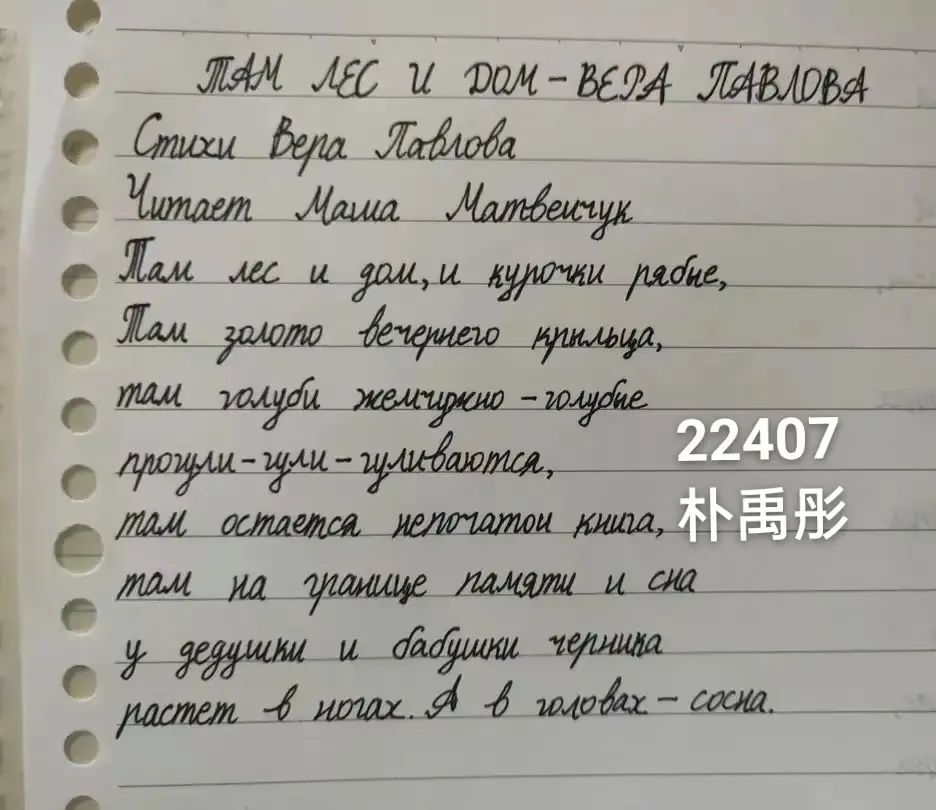 ТАМ ЛЕС И ДОМ-ВЕРА ПАВЛОВА
Стихи Вера Павлова
Читает Маша Матвеичук
Там лес и дом, и курочки рябые,
Там золото вечернего крыльца,
там голуби жемчужно-голубые
прогули-гули-гуливаются,
там остается непочатои книга,
там на границе памяти и сна
у дедушки и бабушки черника
растет в ногах. А в головах-сосна.
22407
朴禹彤